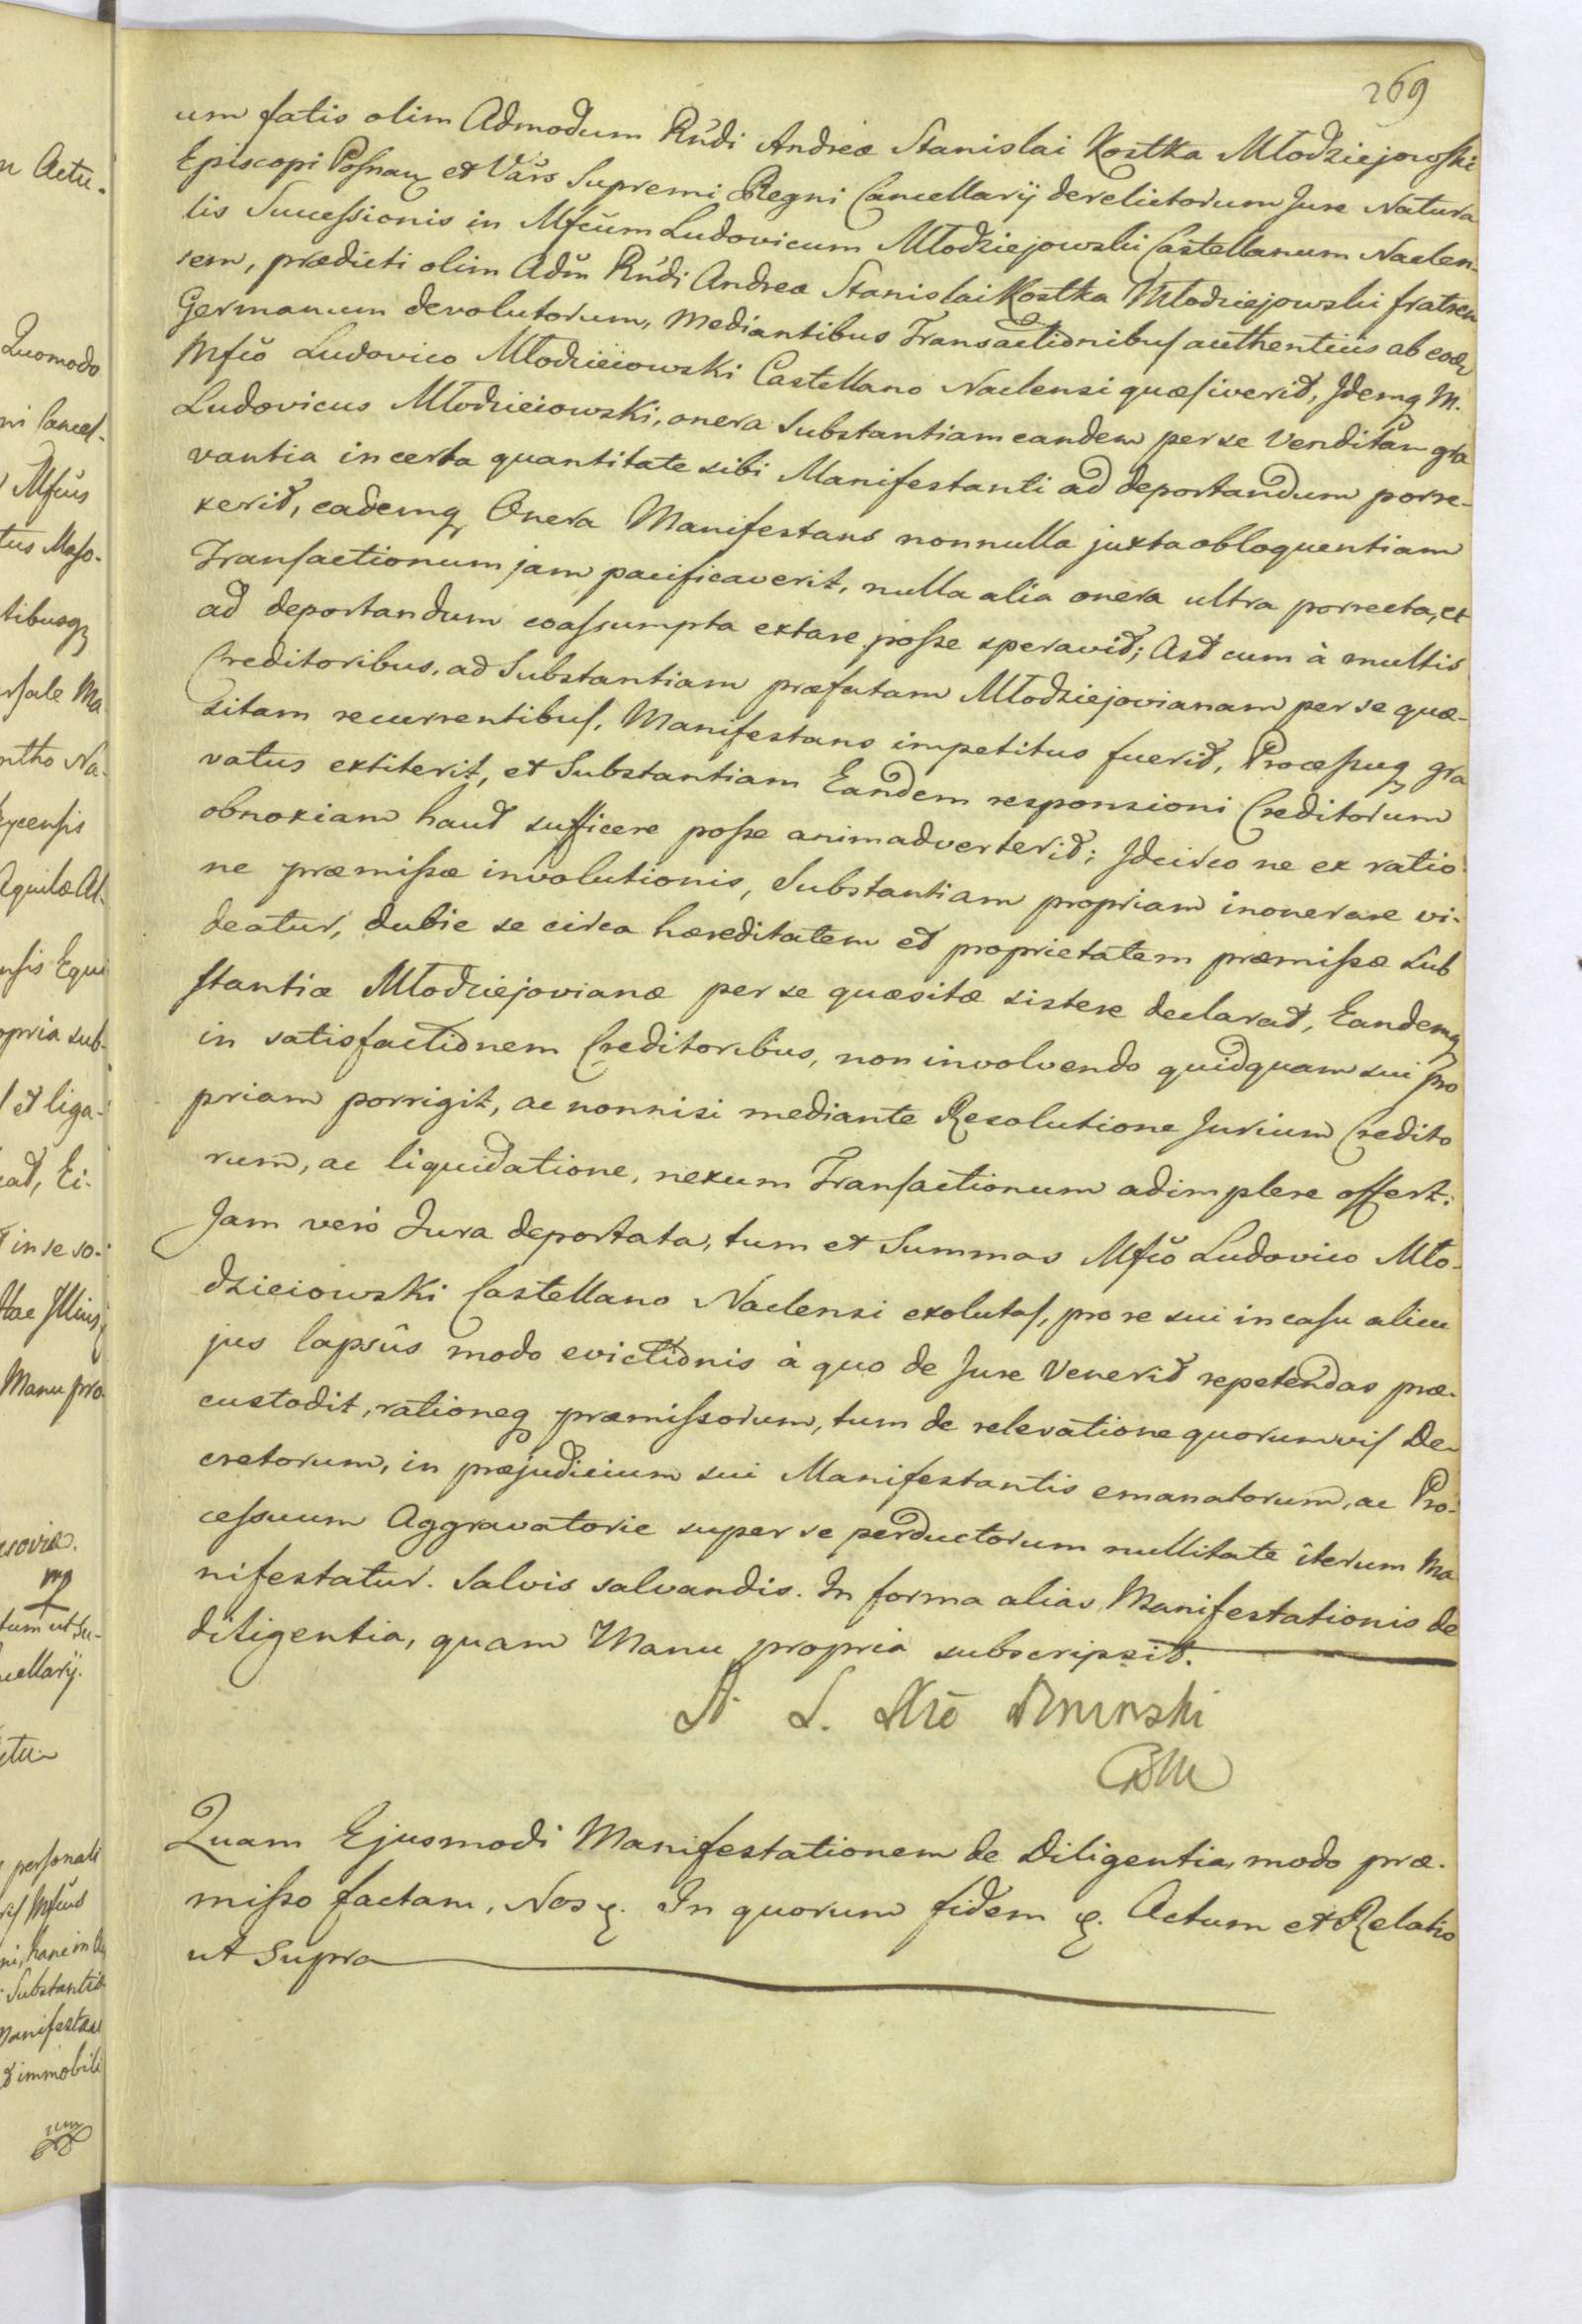 269
um fatis olim Admodum Rńdi Andreæ Stanislai Kostka Młodziejowski
Episcopi Posnan et Vars Supremi Regni Cancellarij derelictorum Jure Natura
lis Successionis in Mfcum Ludovicum Młodziejowski Castellanum Naclen-
sem, prædicti olim Adm Rńdi Andreæ Stanislai Kostka Młodziejowski fratrem
Germanum devolutorum, Mediantibus Transactionibus authenticis ab eodem
Mfco Ludovico Młodzieiowski Castellano Naclensi quæsiverit, Jdemq M.
Ludovicus Młodzieiowski, onera Substantiam eandem per se Venditam gra
vantia in certa quantitate sibi Manifestanti ad deportandum porre-
xerit, eademq Onera Manifestans nonnulla juxta obloquentiam
Transactionum jam pacificaverit, nulla alia onera ultra porrecta, et
ad deportandum coassumpta extare posse speravit; Ast cum à multis
Creditoribus, ad Substantiam præfatam Młodziejovianam per se quæ-
sitam recurrentibus, Manifestans impetitus fuerit, Processuq gra
vatus extiterit, et Substantiam Eandem responsioni Creditorum
obnoxiam haud sufficere posse animadverterit; Jdcirco ne ex ratio
ne præmissæ involutionis, Substantiam propriam inonerare vi-
deatur, dubie se circa hæreditatem et proprietatem præmissæ Sub
stantiæ Młodziejovianæ per se quæsitæ sistere declarat, Eandemq
in satisfactionem Creditoribus, non involvendo quidquam sui pro
priam porrigit, ac nonnisi mediante Resolutione Jurium Credito
rum, ac liquidatione, nexum Transactionum adimplere offert;
Jam verò Jura deportata, tum et Summas Mfco Ludovico Mło-
dzieiowski Castellano Naclensi exolutas, pro re sui in casu alicu
jus lapsûs modo evictionis à quo de Jure Venerit repetendas præ-
custodit, rationeq præmissorum, tum de relevatione quorumvis De
cretorum, in præjudicium sui Manifestantis emanatorum, ac Pro-
cessuum Aggravatorie super se perductorum nullitate iterum Ma
nifestatur. Salvis salvandis. In forma alias Manifestationis de
diligentia, quam Manu propria subscripsit.
Quam Ejusmodi Manifestationem de Diligentia, modo præ-
misso factam, Nos . In quorum fidem . Actum et Relatio
ut Supra
n Actu-
Quomodo
ni Cancel-
Mfcus
tus Maso-
tibusq
rsale Ma
ntho Na-
ycensis
Aquilæ Al-
nsis Equi
opria sub-
et liga-
Ei-
in se so-
Manu pro
soviæ.
mp
tum ut Su-
cellarij.
personali
Mfcus
Substantiæ
Manifestans
immobili
um